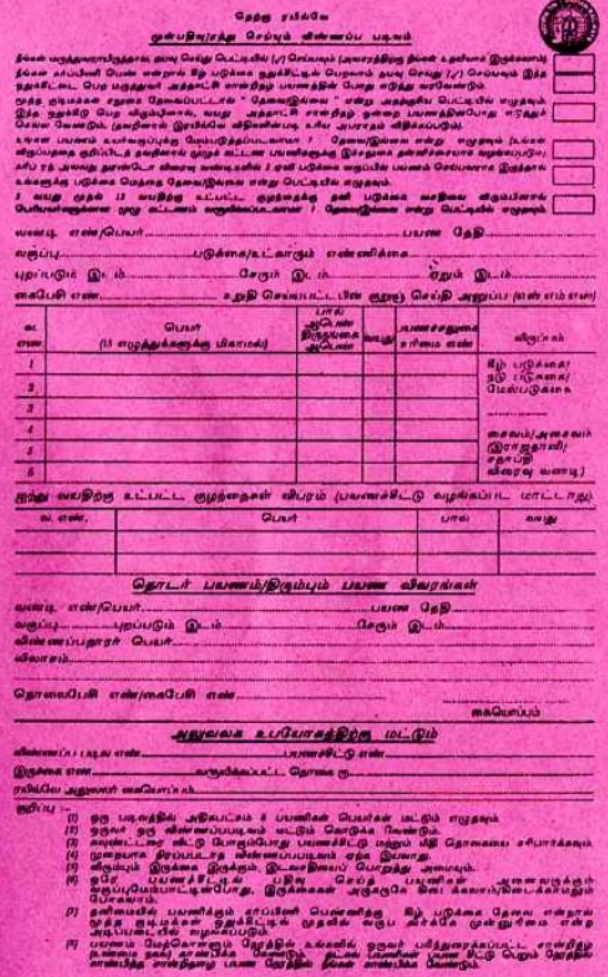 தெற்கு ரயில்வே
முன்பதிவு/ரத்து செய்யும் விண்ணப்ப படிவம்
நீங்கள் மருத்துவராயிருந்தால், தயவு செய்து பெட்டியில் (✓) செய்யவும் (அவசரத்திற்கு நீங்கள் உதவியாக இருக்கலாம்)
நீங்கள் கர்ப்பிணி பெண் என்றால் கீழ் படுக்கை ஒதுக்கீட்டில் பெறலாம் தயவு செய்து (✓) செய்யவும் இந்த
ஒதுக்கீட்டை பெற மருத்துவர் அத்தாட்சி சான்றிதழ் பயணத்தின் போது எடுத்து வரவேண்டும்.
மூத்த குடிமக்கள் சலுகை தேவைப்பட்டால் " தேவை/இல்லை " என்று அதற்குரிய பெட்டியில் எழுதவும்
இந்த ஒதுக்கீடு பெற விரும்பினால், வயது அத்தாட்சி சான்றிதழ் ஒன்றை பயணத்தின்போது எடுத்துச்
செல்ல வேண்டும். (தவறினால் இரயில்வே விதிகளின்படி உரிய அபராதம் விதிக்கப்படும்).
உங்கள் பயணம் உயர்வகுப்புக்கு மேம்படுத்தப்படலாமா ? தேவை/இல்லை என்று எழுதவும் (உங்கள்
விருப்பத்தை குறிப்பிடத் தவறினால் முழுக் கட்டண பயணிகளுக்கு இச்சலுகை தன்னிச்சையாக வழங்கப்படும்)
கரிப் ரத் அல்லது துரண்டோ விரைவு வண்டிகளில் 3 ஏசி படுக்கை வகுப்பில் பயணம் செய்பவராக இருந்தால்
உங்களுக்கு படுக்கை மெத்தை தேவை/இல்லை என்று பெட்டியில் எழுதவும்.
5 வயது முதல் 12 வயதிற்கு உட்பட்ட குழந்தைக்கு தனி படுக்கை வசதியை விரும்பினால்
பெரியவர்களுக்கான முழு கட்டணம் வசூலிக்கப்படலாமா ? தேவை/இல்லை என்று பெட்டியில் எழுதவும்
வண்டி எண்/பெயர் பயண தேதி
வகுப்பு படுக்கை/உட்காரும் எண்ணிக்கை
புறப்படும் இடம் சேரும் இடம் ஏறும் இடம்
கைபேசி எண் உறுதி செய்யபட்ட பின் குறுஞ் செய்தி அனுப்ப (எஸ் எம் எஸ்)
வ. எண் பெயர் (15 எழுத்துக்களுக்கு மிகாமல்) பால் ஆ/பெண் திருநங்கை ஆ/பெண் வயது பயணச்சலுகை உரிமை எண் விருப்பம்
1 கீழ் படுக்கை/
நடு படுக்கை/
2 மேல்படுக்கை
3
4 சைவம்/அசைவம்
5 (இராஜதானி/
சதாப்தி
6 விரைவு வண்டி)
ஐந்து வயதிற்கு உட்பட்ட குழந்தைகள் விபரம் (பயணச்சீட்டு வழங்கப்பட மாட்டாது).
வ. எண். பெயர் பால் வயது
தொடர் பயணம்/திரும்பும் பயண விவரங்கள்
வண்டி எண்/பெயர் பயண தேதி
வகுப்பு புறப்படும் இடம் சேரும் இடம்
விண்ணப்பதாரர் பெயர்
விலாசம்
தொலைபேசி எண்/கைபேசி எண்
கையொப்பம்
அலுவலக உபயோகத்திற்கு மட்டும்
விண்ணப்ப படிவ எண் பயணச்சீட்டு எண்
இருக்கை எண் வசூலிக்கப்பட்ட தொகை ரூ
ரயில்வே அலுவலர் கையொப்பம்
குறிப்பு :-
(1) ஒரு படிவத்தில் அதிகபட்சம் 6 பயணிகள் பெயர்கள் மட்டும் எழுதவும்
(2) ஒருவர் ஒரு விண்ணப்பபடிவம் மட்டும் கொடுக்க வேண்டும்.
(3) கவுண்ட்டரை விட்டு போகும்போது பயணச்சீட்டு மற்றும் மீதி தொகையை சரிபார்க்கவும்
(4) முறையாக நிரப்படாத விண்ணப்பபடிவம் ஏற்க இயலாது.
(5) விரும்பும் இருக்கை இருக்கும், இடவசதியைப் பொறுத்து அமையும்.
(6) ஒரே பயணச்சீட்டில் பதிவு செய்த பயணிகள் அனைவருக்கும்
வகுப்புமேம்பாட்டின்போது, இருக்கைகள் அருகருகே கிடைக்கலாம்/கிடைக்காமலும்
போகலாம்.
(7) தனிமையில் பயணிக்கும் கர்ப்பிணி பெண்ணிற்கு கீழ் படுக்கை தேவை என்றால்
மூத்த குடிமக்கள் ஒதுக்கீட்டில் முதலில் வருபவர்க்கே முன்னுரிமை என்ற
அடிப்படையில் வழங்கப்படும்.
(8) பயணம் மேற்கொள்ளும் நேரத்தில் உங்களில் ஒருவர் பரிந்துரைக்கப்பட்ட சான்றிதழ்
(உண்மை நகல்) காண்பிக்க வேண்டும். தட்கல் பயணிகள் பயண சீட்டு பெறும் நேரத்தில்
காண்பித்த சான்றிதழை பயண நேரத்தில் நீங்கள் காண்பிக்க வேண்டும்.